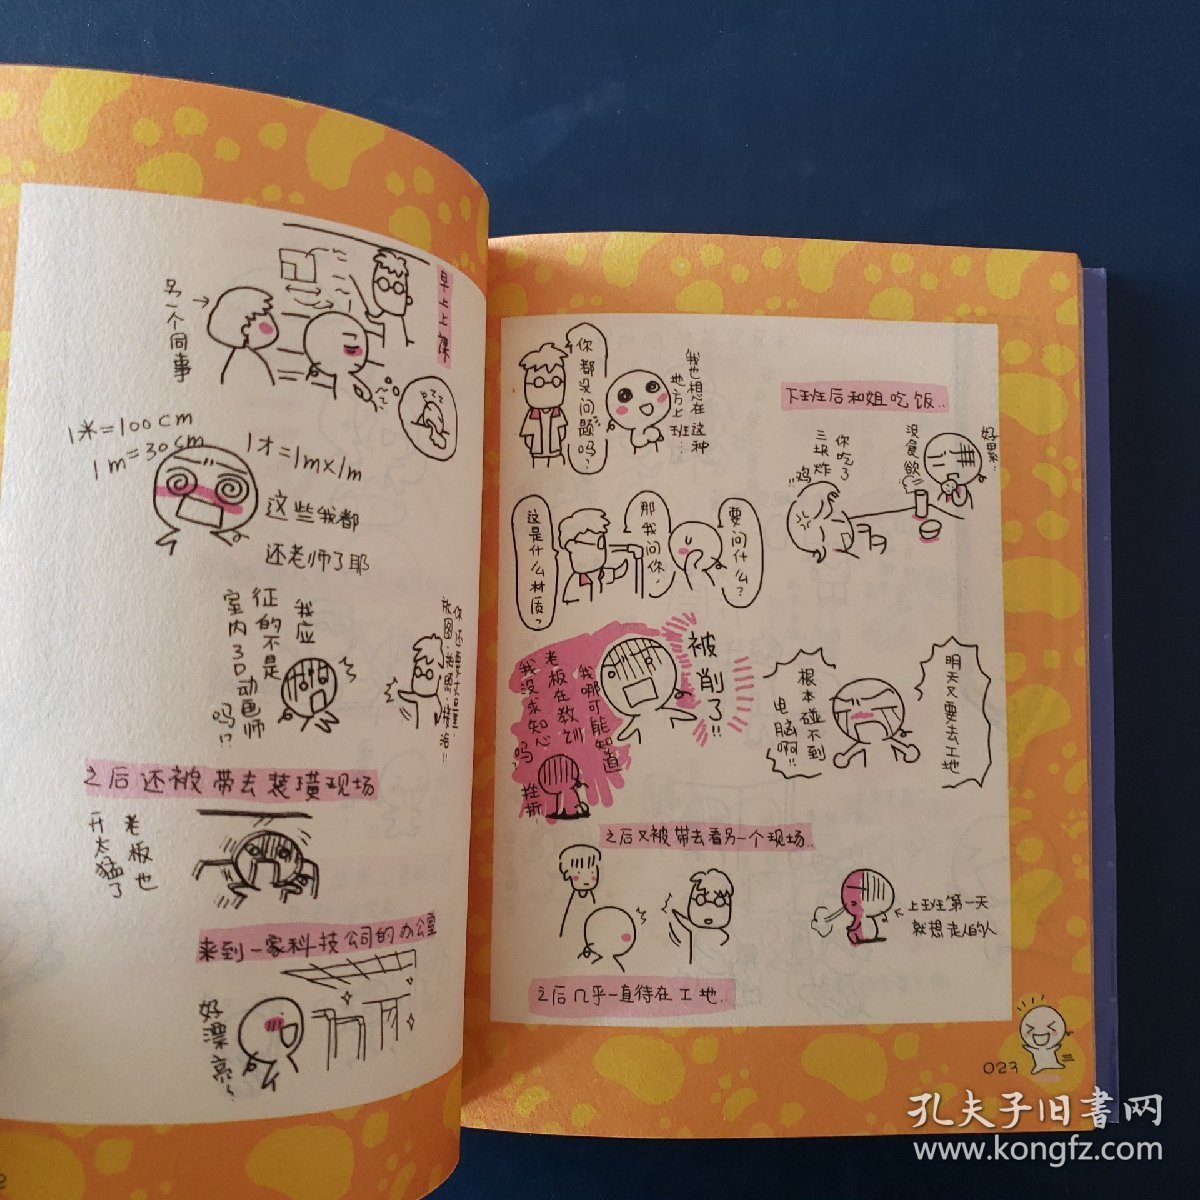 早上上课
另一个同事
zzz
1米=100cm
1m=30cm
1才=1m×1m
这些我都
还老师了耶
我应
征的不是
室内3D动画师
吗!?
你还要丈量!
放图!
之后还被带去装璜现场
老板也
开太猛了
来到一家科技公司的办公室
好漂亮~
你都没问题吗?
我也想在这种
地方上班…
要问什么?
那我问你!
这是什么材质?
被削了!!
我哪可能知道
老板在教训
我没求知心
吗?
挫折
之后又被带去看另一个现场..
之后几乎一直待在工地..
下班后和姐吃饭..
好累..
没食欲
你吃了
三块炸
鸡!!
明天又要去工地
根本碰不到
电脑啊!!
上班第一天
就想走人的人
023
孔夫子旧書网
www.kongfz.com